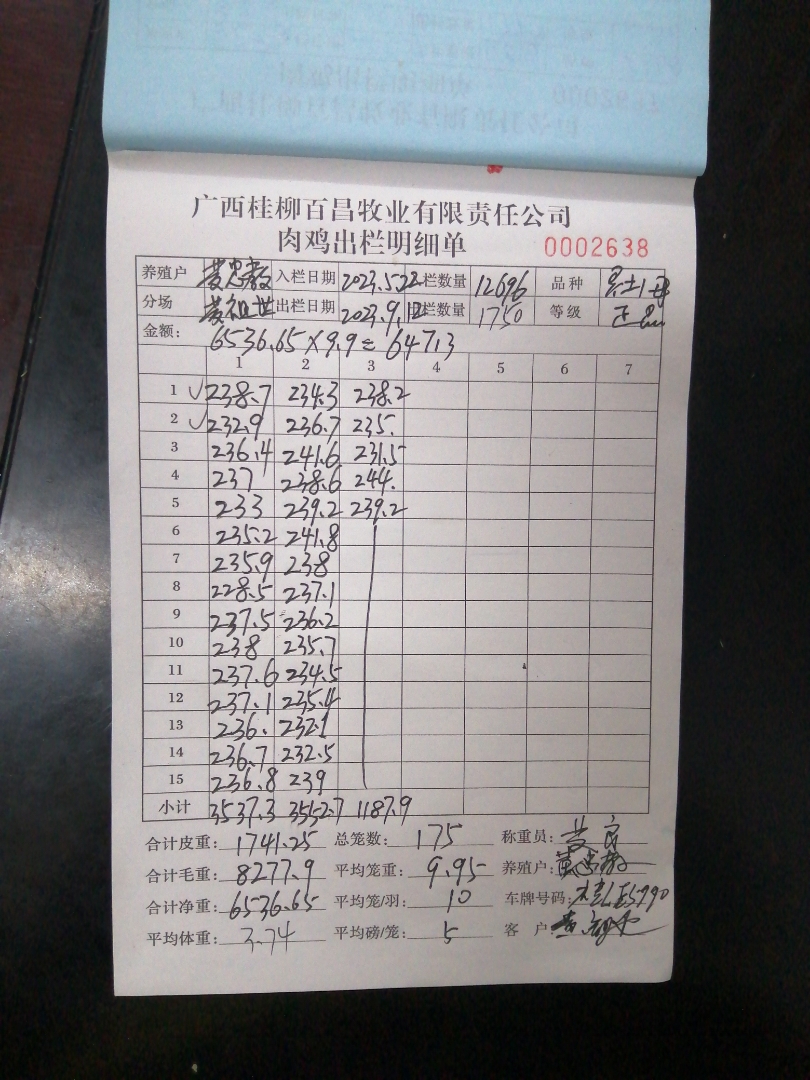 广西桂柳百昌牧业有限责任公司
肉鸡出栏明细单 0002638
养殖户 黄忠教 入栏日期 2023.5.22 栏数量 12696 品种
分场 黄祖世 出栏日期 2023.9.12 栏数量 1750 等级 正品
金额: 6536.65×9.9=64713
1 2 3 4 5 6 7
1 √238.7 234.3 238.2
2 √232.9 236.7 235.
3 236.4 241.6 231.5
4 237 238.6 244.
5 233 239.2 239.2
6 235.2 241.8
7 235.9 238
8 228.5 237.1
9 237.5 236.2
10 238 235.7
11 237.6 234.5
12 237.1 235.4
13 236. 232.1
14 236.7 232.5
15 236.8 239
小计 3537.3 3552.7 1187.9
合计皮重: 1741.25 总笼数: 175 称重员: 黄
合计毛重: 8277.9 平均笼重: 9.95 养殖户: 黄忠教
合计净重: 6536.65 平均笼/羽: 10 车牌号码:
平均体重: 3.74 平均磅/笼: 5 客 户: